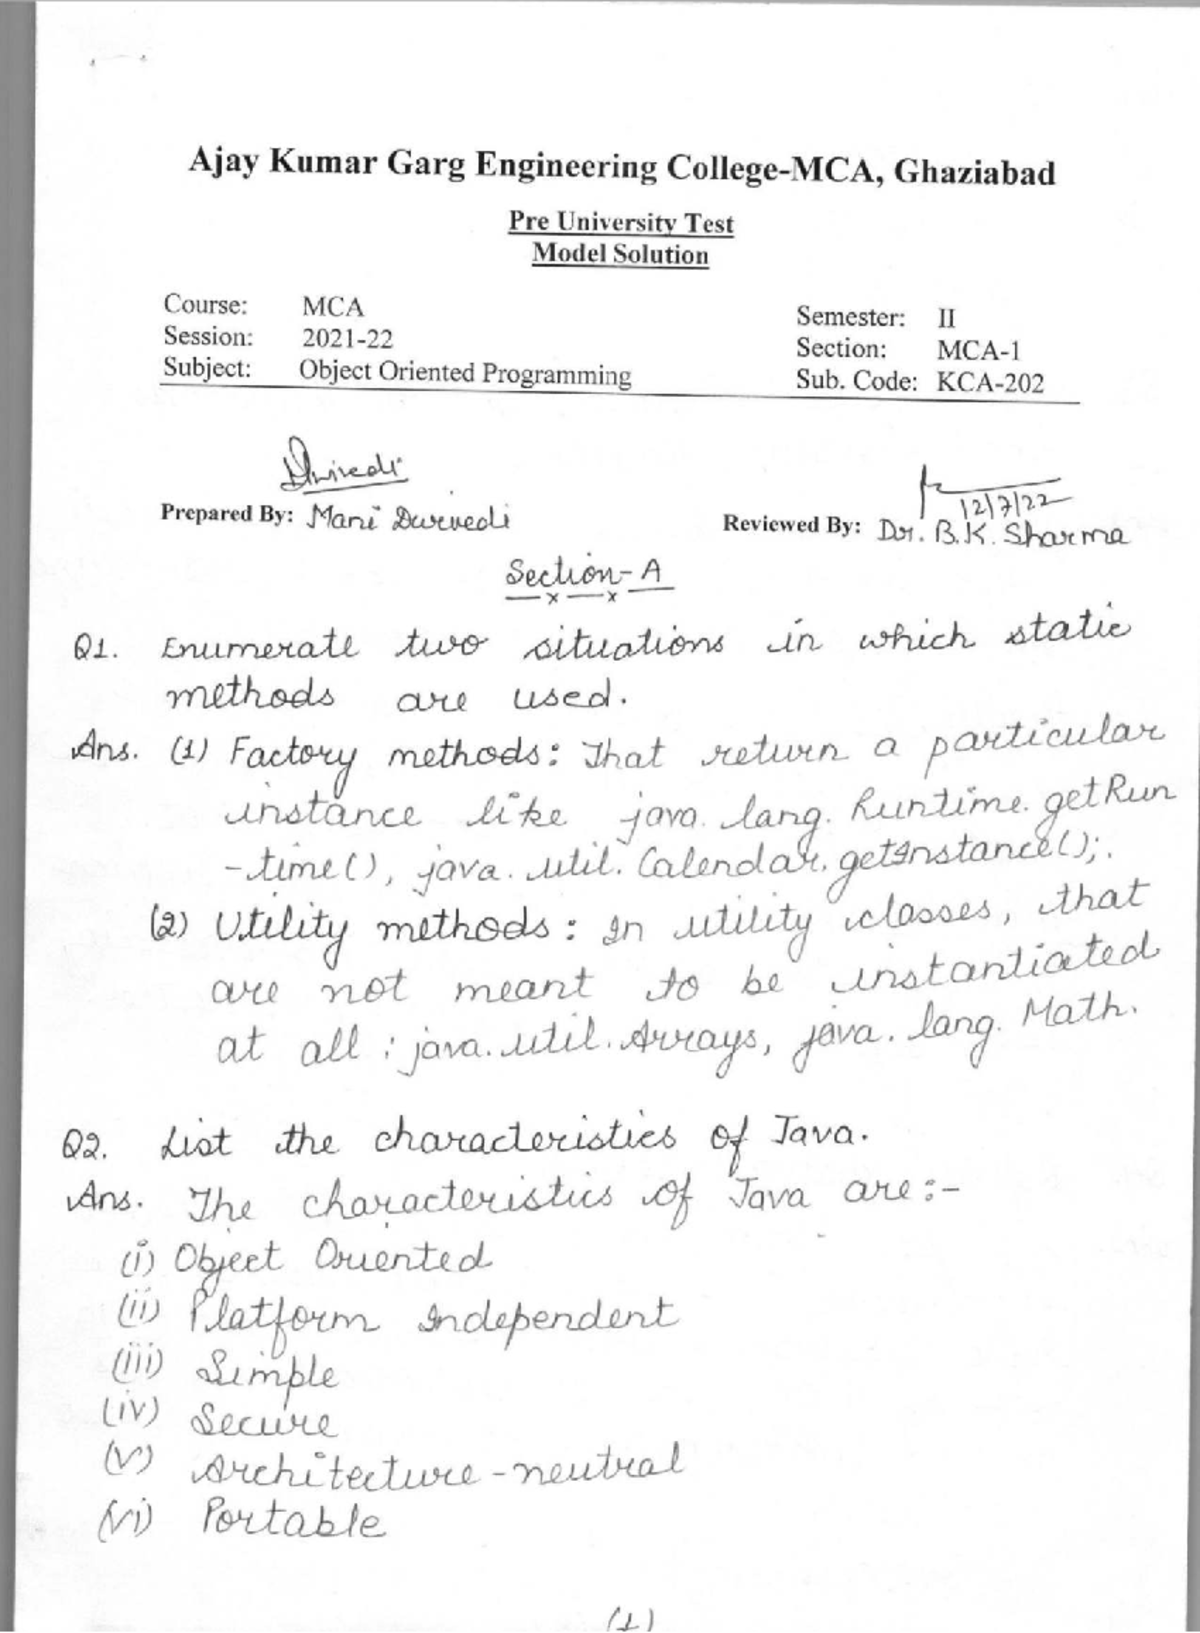 Ajay Kumar Garg Engineering College-MCA, Ghaziabad
Pre University Test
Model Solution
Course: MCA Semester: II
Session: 2021-22 Section: MCA-1
Subject: Object Oriented Programming Sub. Code: KCA-202
Dwivedi
12/7/22
Prepared By: Mani Dwivedi Reviewed By: Dr. B.K. Sharma
Section-A
Q1. Enumerate two situations in which static
methods are used.
Ans. (1) Factory methods: That return a particular
instance like java. lang. Runtime. getRun
-time(), java. util. Calendar. getInstance();.
(2) Utility methods: In utility classes, that
are not meant to be instantiated
at all: java. util. Arrays, java. lang. Math.
Q2. List the characteristics of Java.
Ans. The characteristics of Java are:-
(i) Object Oriented
(ii) Platform Independent
(iii) Simple
(iv) Secure
(v) Architecture-neutral
(vi) Portable
(1)